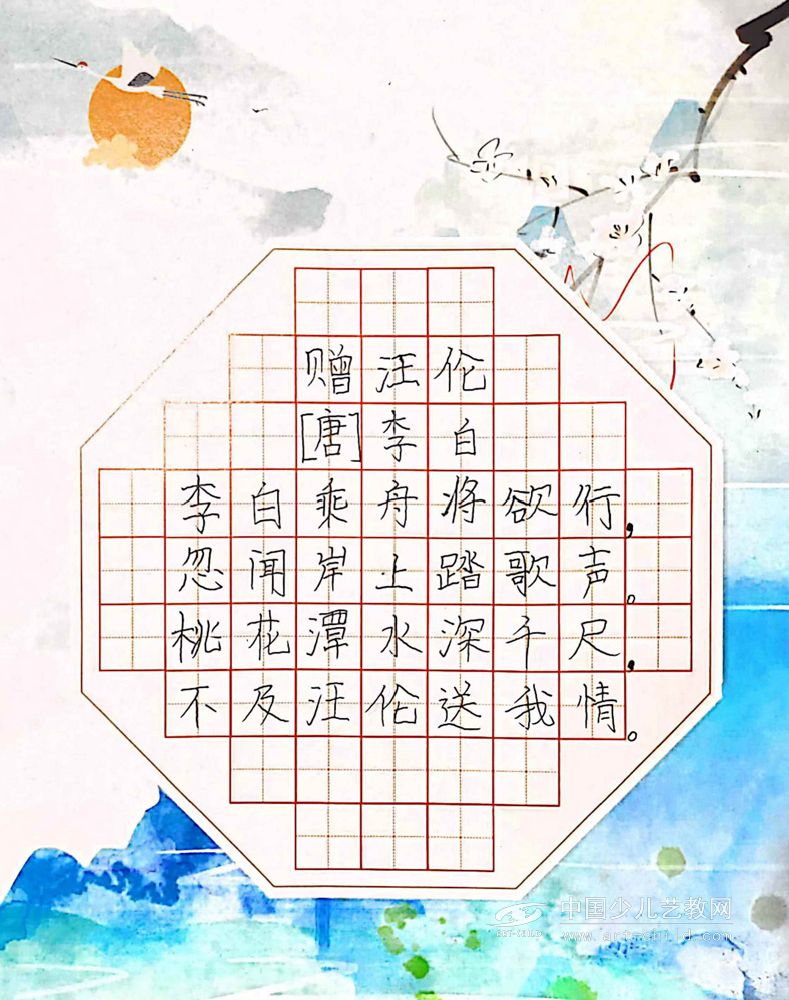 赠汪伦
[唐]李白
李白乘舟将欲行,
忽闻岸上踏歌声。
桃花潭水深千尺,
不及汪伦送我情。
中国少儿艺教网
www.art-child.com